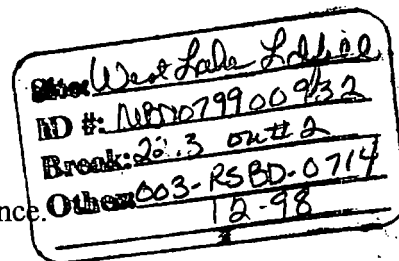 Site: West Lake Landfill
ID #: MOD079900932
Break: 22.3 out# 2
Other: 003-RSBD-0714
12-98
nce.